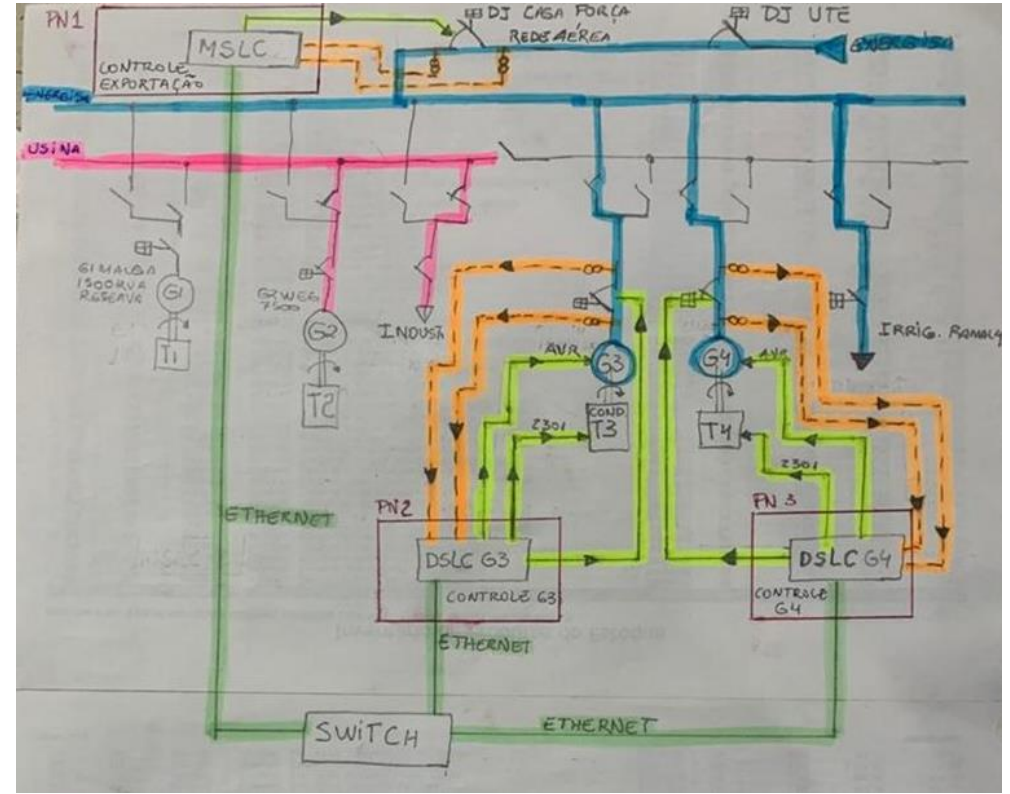 PN1
MSLC
CONTROLE
EXPORTAÇÃO
DJ CASA FORÇA
REDE AÉREA
DJ UTE
ENERGISA
ENERGISA
USINA
G1 MAUSA
1500KVA
RESERVA
G1
T1
G2 WEG
7500
G2
T2
INDUST
AVR
2301
G3
COND
T3
G4
T4
AVR
2301
IRRIG. RAMALY
PN2
DSLC G3
CONTROLE G3
PN 3
DSLC G4
CONTROLE
G4
ETHERNET
ETHERNET
ETHERNET
SWITCH